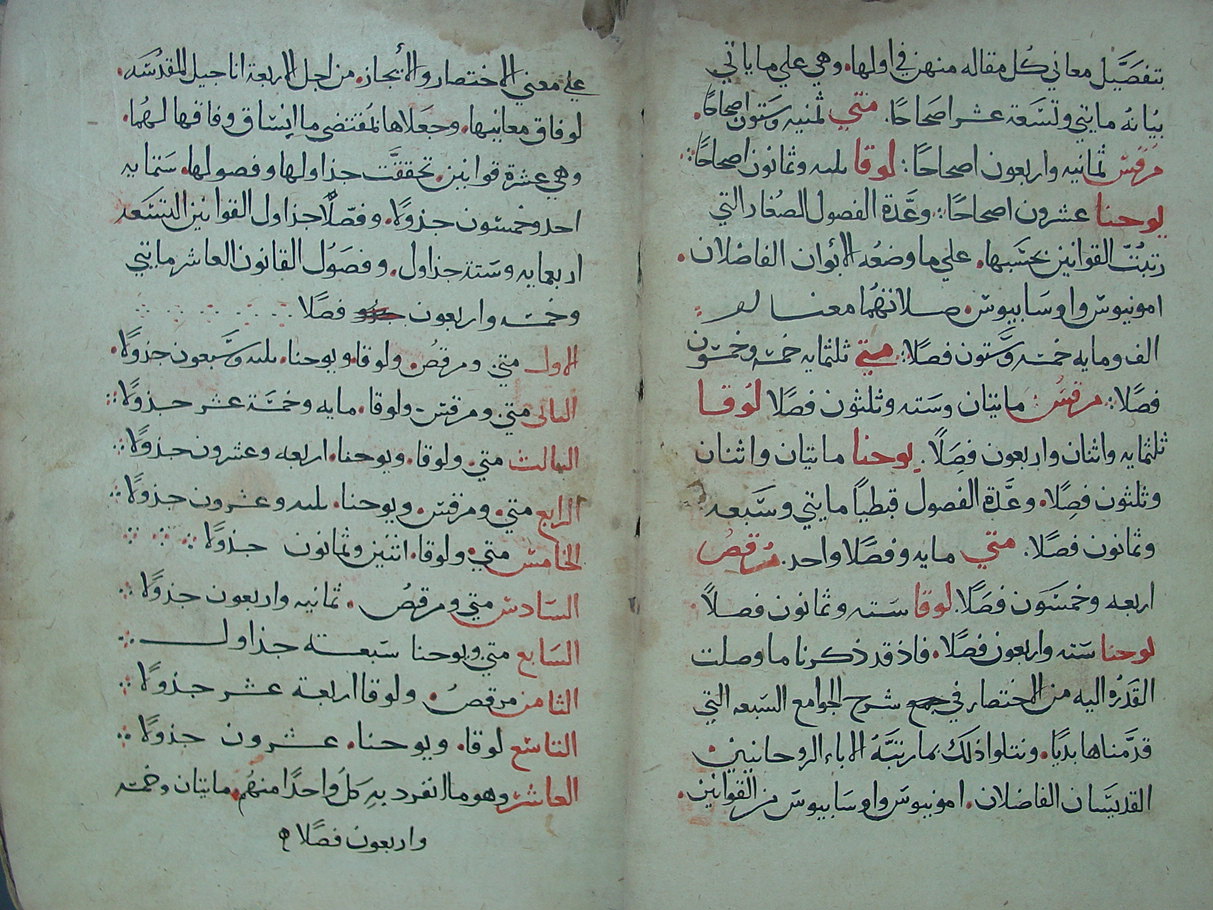 بتفصَّيل معاني كُل مقاله منهن في اولها، وهي علي ما ياتي
بيَانهُ مايتي وتسَعَة عشر اصَحاحًا. متي ثمنيه وستون اصحاحًا.
مرقس ثمانيه واربعون اصحاحًا: لوقا ثلثه وثمانون اصحاحًا:
يوحنا عشرون اصحاحًا: وعَّدة الفصول الصغار التي
رتبتَّ القوانين بحسَبها. علي ما وضعُه الأبوان الفاضلان.
امونيوس واوسَابيوس. صلاتهُما معنا
الف ومايه خمسَة وستون فصلًا: متي ثلثمايه خمسَة وخمسون
فصلًا: مرقسُ مايتان وسَته وثلثون فصلًا لوقا
ثلثمايه واثنان واربعون فصلًا. يوحنا مايتان واثنان
وثلثون فصلًا. وعَّدة الفصول قبطيًا مايتي وسَبعه
وثمانون فصلًا. متي مايه وفصلًا واحد. مُرقصُ
اربعه وخمسَون فصَلًا. لوقا سَته وثمانون فصلًا.
يوحنا سَته واربعون فصلًا. فاذ قد ذكرنا ما وصلت
القدَرُه اليه من الاختصار في جمع شرح الجوامع السَبعه التي
قدمَّناها بديًا. ونتلوا ذلك بما رتبَّهُ الاباء الروحانيين
القديسَان الفاضلان. امونيوس واوسَابيوس من القوانين.
علي معني الاختصار والأيجاز. من اجل الاربعة اناجيل المقدسَّه.
لوفاق معانيها. وجعَلاها لمُقتضى ما اتسَاق وفاقها لهُما.
وهي عشرة قوانين. تحققَت جداولها وفصولها. سَتمايه
احد وخمسَون جدولًا. وفصّلًا جداول القوانين التسَعه
اربعمايه وسَتة جداول. وفصَول القانون العاشر مايتي
وخمسَه واربعون فصلًا
الاول متي ومرقصُ ولوقا ويوحنا. ثلثه وسَبعون جدولًا.
الثاني متي ومرقسَ ولوقا. مايه وخمسَة عشر جدولًا:
الثالث متي. ولوقا. ويوحنا. اربعه وعشرون جدولًا:
الرابع متي. ومرقسَ. ويوحنا. ثلثه وعشرون جدولًا:
الخامس متي. ولوقا. اثنين وثمانون جدولًا:
السَادس متي ومرقصُ. ثمانيه واربعون جدولًا:
السَابع متي ويوحنا سَبعته جداول
الثامن مرقصُ. ولوقا اربعة عشر جدولًا:
التاسَع لوقا. ويوحنا. عشرون جدولًا:
العاشر وهو ما انفرد به كل واحدًا منهُم. مايتان وخمسَه
واربعون فصلًا